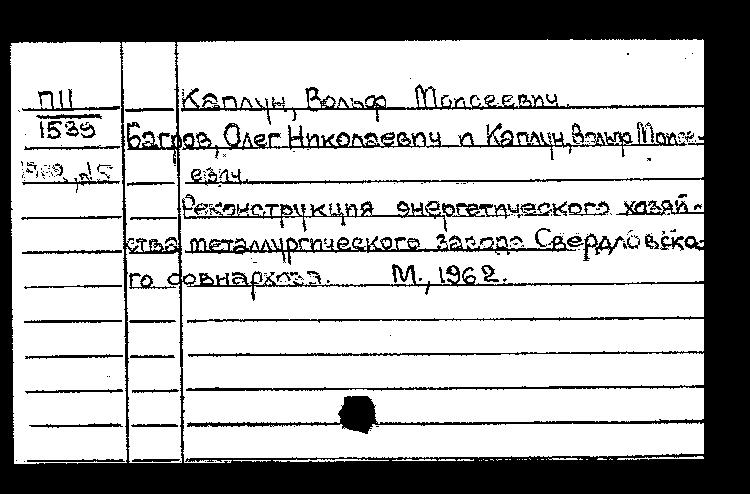 П11
1539
1962, №5
Каплун, Вольф Моисеевич.
Багров, Олег Николаевич и Каплун, Вольф Моисе-
евич.
Реконструкция энергетического хозяй-
ства металлургического завода Свердловско-
го совнархоза. М., 1962.